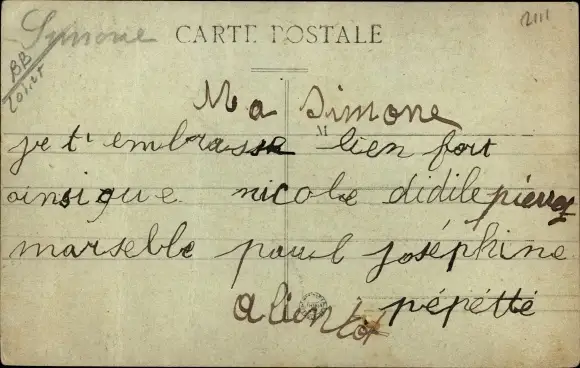 Simone
CARTE POSTALE
2111
BB
Loiret
Ma Simone
je t'embrasse bien fort
ainsi que nicole didile pierre
marselle paul joséphine
a bientôt pépétte